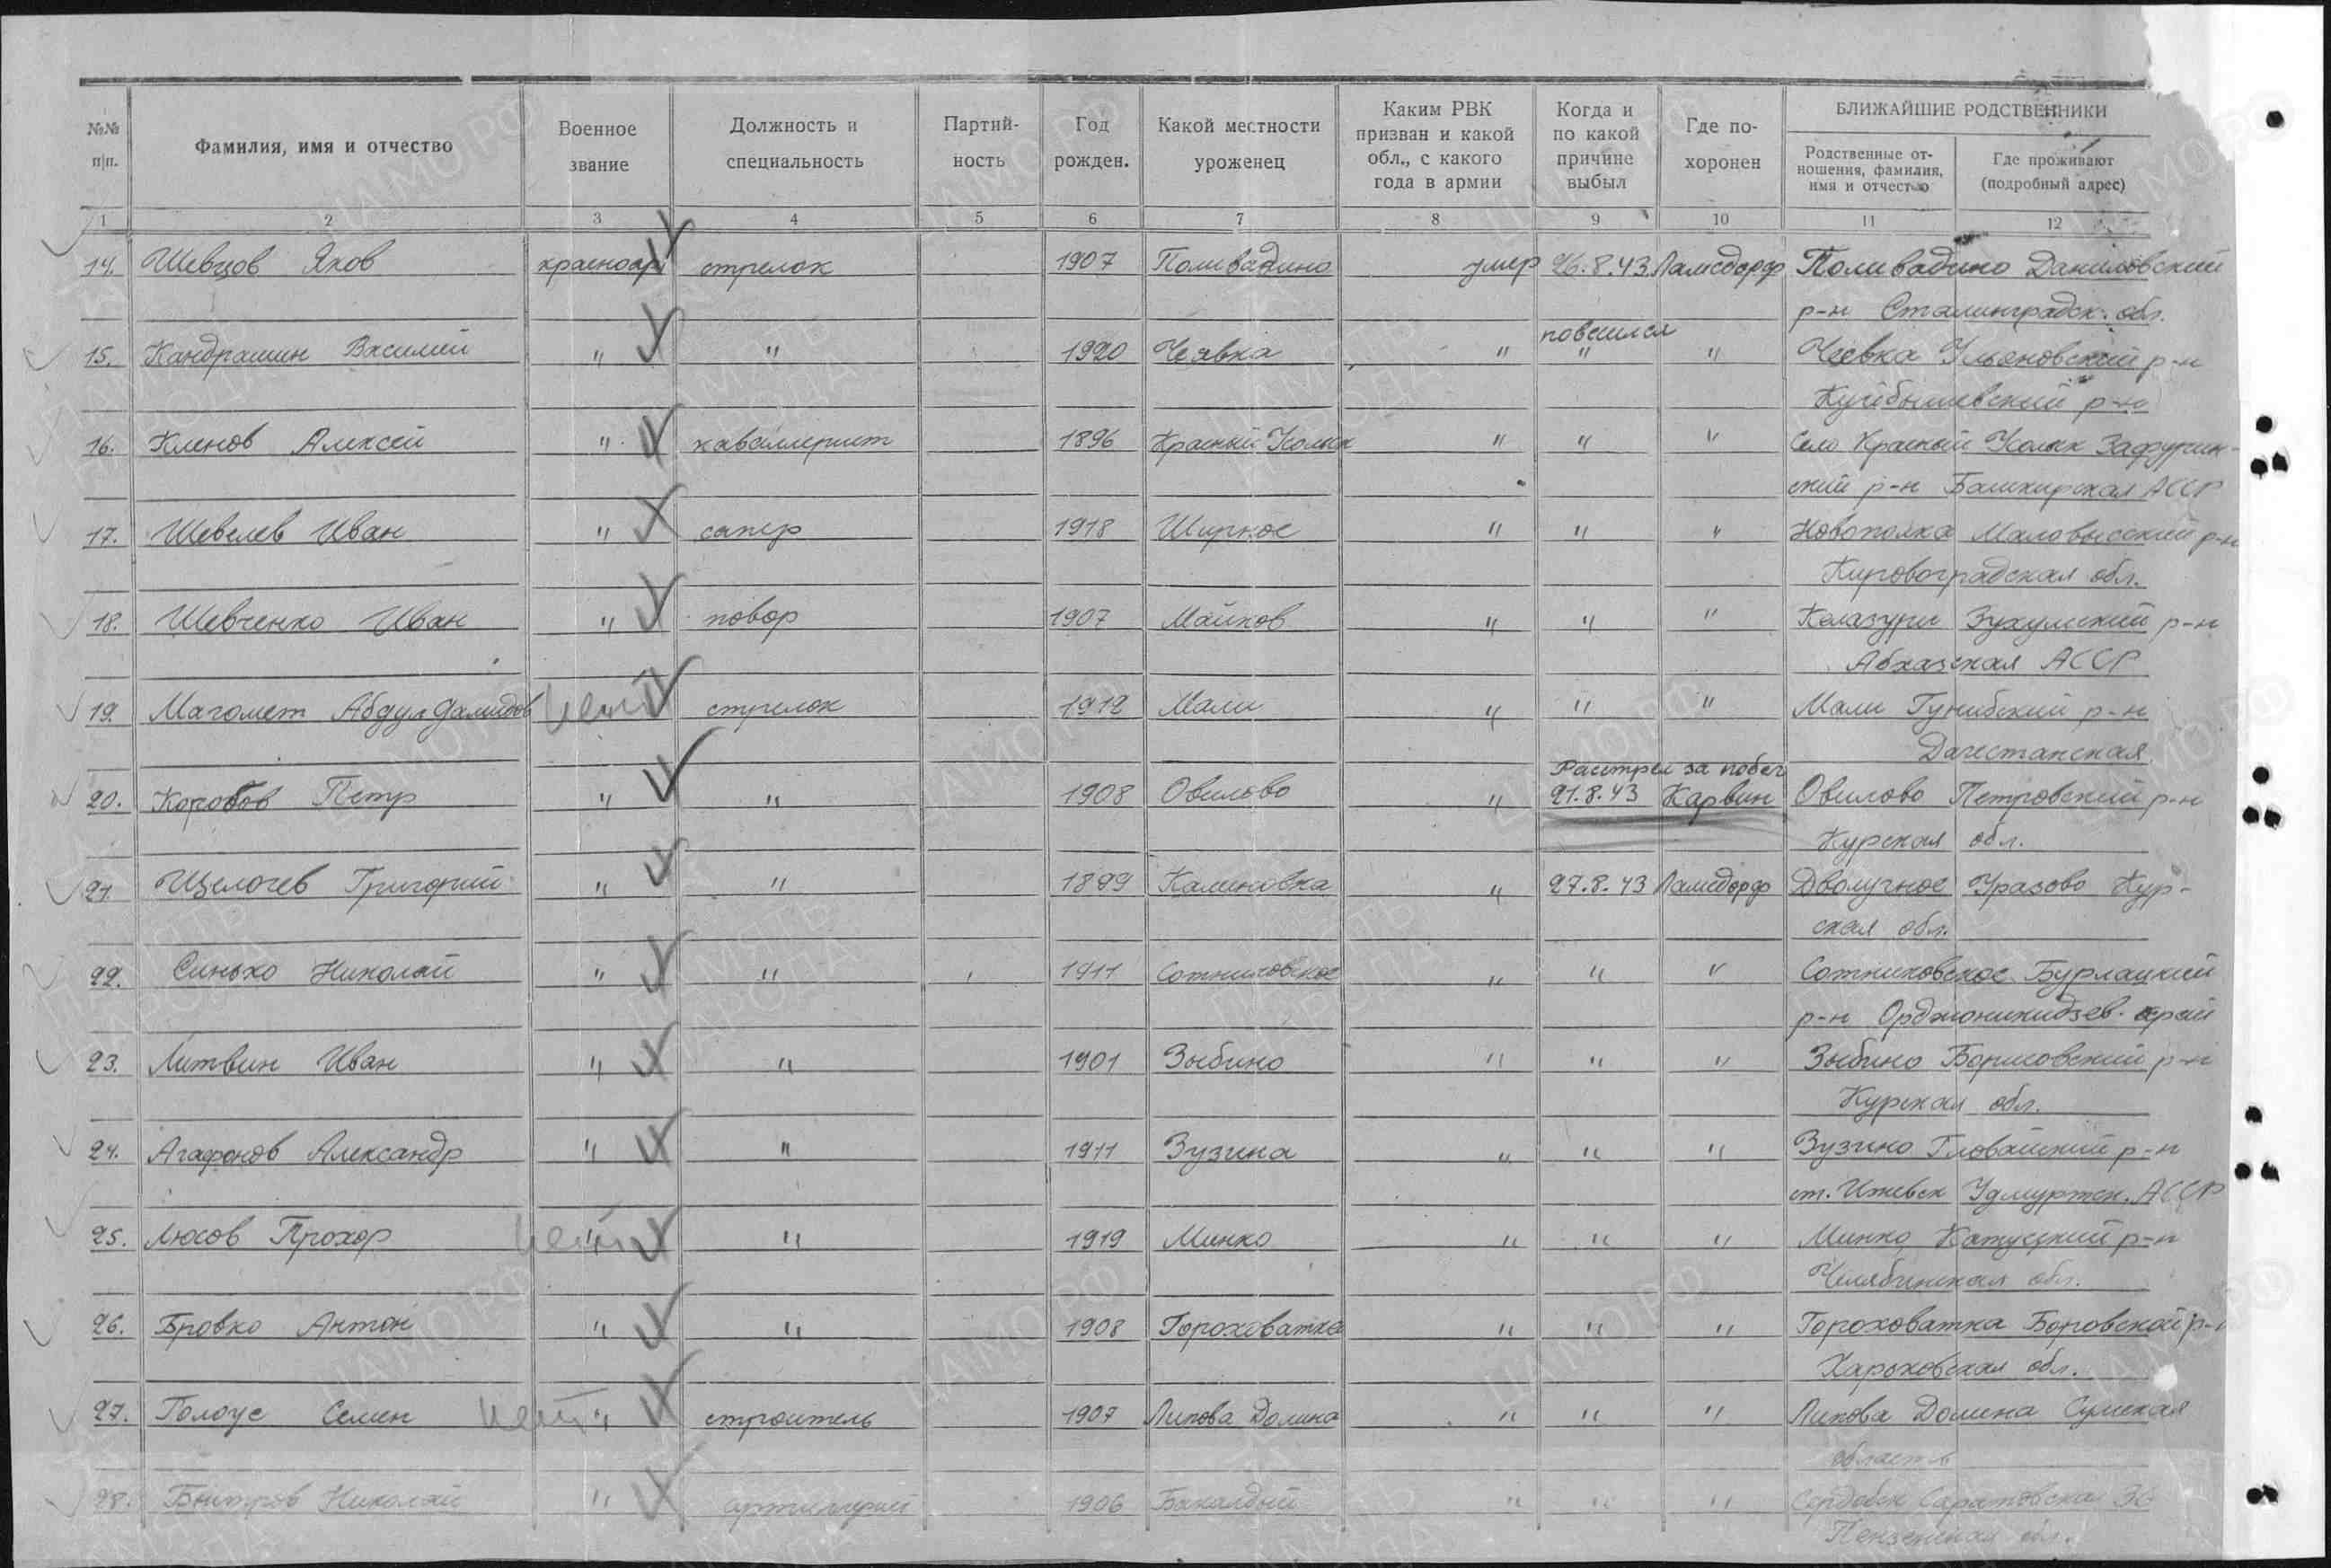 №№ п|п. Фамилия, имя и отчество Военное звание Должность и специальность Партий-ность Год рожден. Какой местности уроженец Каким РВК призван и какой обл., с какого года в армии Когда и по какой причине выбыл Где по-хоронен БЛИЖАЙШИЕ РОДСТВЕННИКИ
Родственные от-ношения, фамилия, имя и отчество Где проживают (подробный адрес)
1 2 3 4 5 6 7 8 9 10 11 12
14. Шевцов Яков красноар. стрелок 1907 Поливадино умер 26.8.43 Ламсдорф Поливадино Даниловский
р-н Сталинградск. обл.
повешился
15. Кандрашин Василий " " 1920 Чеявка " " " Чеевка Ульяновский р-н
Куйбышевский р-н
16. Кленов Алексей " каваллерист 1896 Красный " " " Село Красный
ский р-н Башкирская АССР
17. Шевелев Иван " сапер 1918 Ширное " " " Новополка Маловысский р-н
Кировоградская обл.
18. Шевченко Иван " повор 1907 Майков " " " Келазури Зухумский р-н
Абхазская АССР
19. Магомет Абдул стрелок 1912 Мали " " " Мали Гунибский р-н
Дагестанская
Расстрел за побег
20. Коробов Петр " " 1908 Овилово " 21.8.43 Карвин Овилово Петровский р-н
Курская обл.
21. Щелочев Григорий " " 1899 Калиновка " 27.8.43 Ламсдорф Дволучное Уразово Кур-
ская обл.
22. Синько Николай " " 1911 Сотниковское " " " Сотниковское Бурлацкий
р-н Орджоникидзев. край
23. Литвин Иван " " 1901 Зыбино " " " Зыбино Борисовский р-н
Курская обл.
24. Агафонов Александр " " 1911 Зузина " " " Зузино Гловайский р-н
ст. Ижевск Удмуртск. АССР
25. Люсов Прохор " " 1919 Минко " " " Минко Катуцкий р-н
Челябинская обл.
26. Бровко Антон " " 1908 Гороховатка " " " Гороховатка Боровской р-н
Харьковская обл.
27. Голоус Семен " строитель 1907 Липова Долина " " " Липова Долина Сумская
область
28. Николай " артиллерист 1906 Бакалдый " " " Сердобск Саратовская
Пензенская обл.